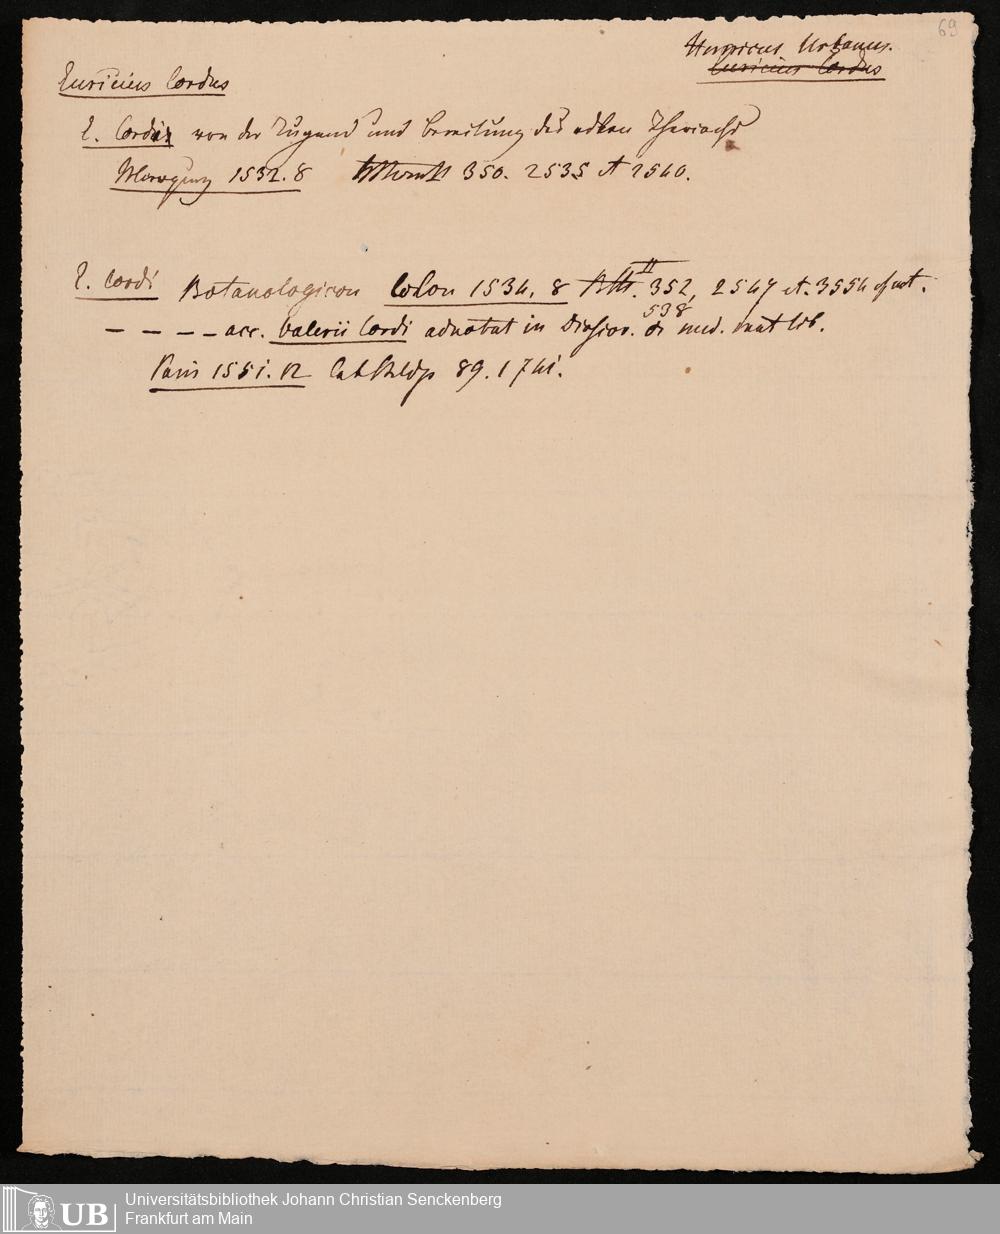 69
Urbanus.
Euricius Cordus
Euricius Cordus
E. Cordi von der Tugend und Bereitung des edlen Theriacks
1532. 8 350. 2535 et 2540.
E. Cordi Botanologicon Colon 1534, 8 352, 2547 et. 3554
II
538
– – – – acc. Valerii Cordi adnotat in Dioscor. de med. mat lib.
Paris 1551. 12 Cat 89. 1741.
UB
Universitätsbibliothek Johann Christian Senckenberg
Frankfurt am Main